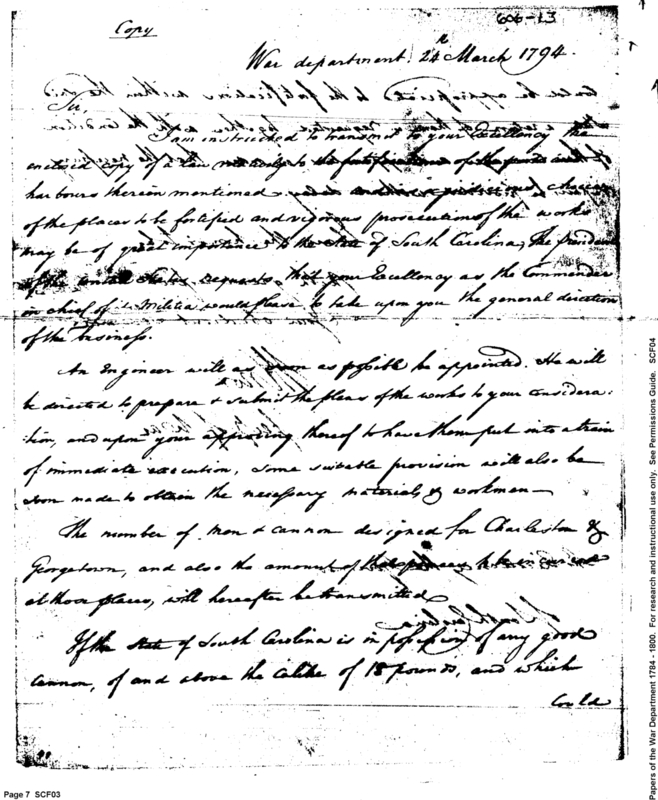 606-13
Copy
War department. 24th March 1794.
Sir,
I am instructed to transmit to your Excellency the
enclosed copy of a law relatively to the fortifications of the ports and
harbours therein mentioned
of the places to be fortified and vigorous prosecution of the works
may be of great importance to the State of South Carolina, The President
of the united States requests that your Excellency as the Commander
in chief of its Militia would please to take upon you the general direction
of the business.
An Engineer will as soon as possible be appointed. He will
be directed to prepare & submit the plans of the works to your considera-
tion, and upon your approving thereof to have them put into a train
of immediate execution, Some suitable provision will also be
soon made to obtain the necessary materials & workmen—
The number of men & cannon designed for Charleston &
Georgetown, and also the amount of the expences to be incurred
at those places, will hereafter be transmitted.
If the State of South Carolina is in possession of any good
Cannon, of and above the calibre of 18 pounds, and which
Could
Page 7 SCF03
Papers of the War Department 1784 - 1800. For research and instructional use only. See Permissions Guide. SCF04